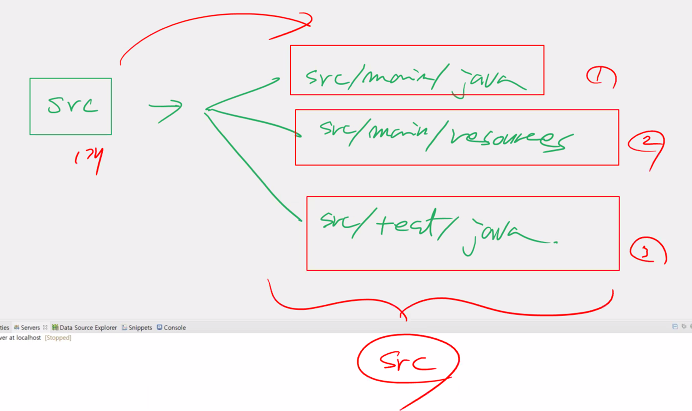 src/main/java
①
src
src/main/resources
②
src/test/java
③
ties Servers Data Source Explorer Snippets Console
ver at localhost [Stopped]
src